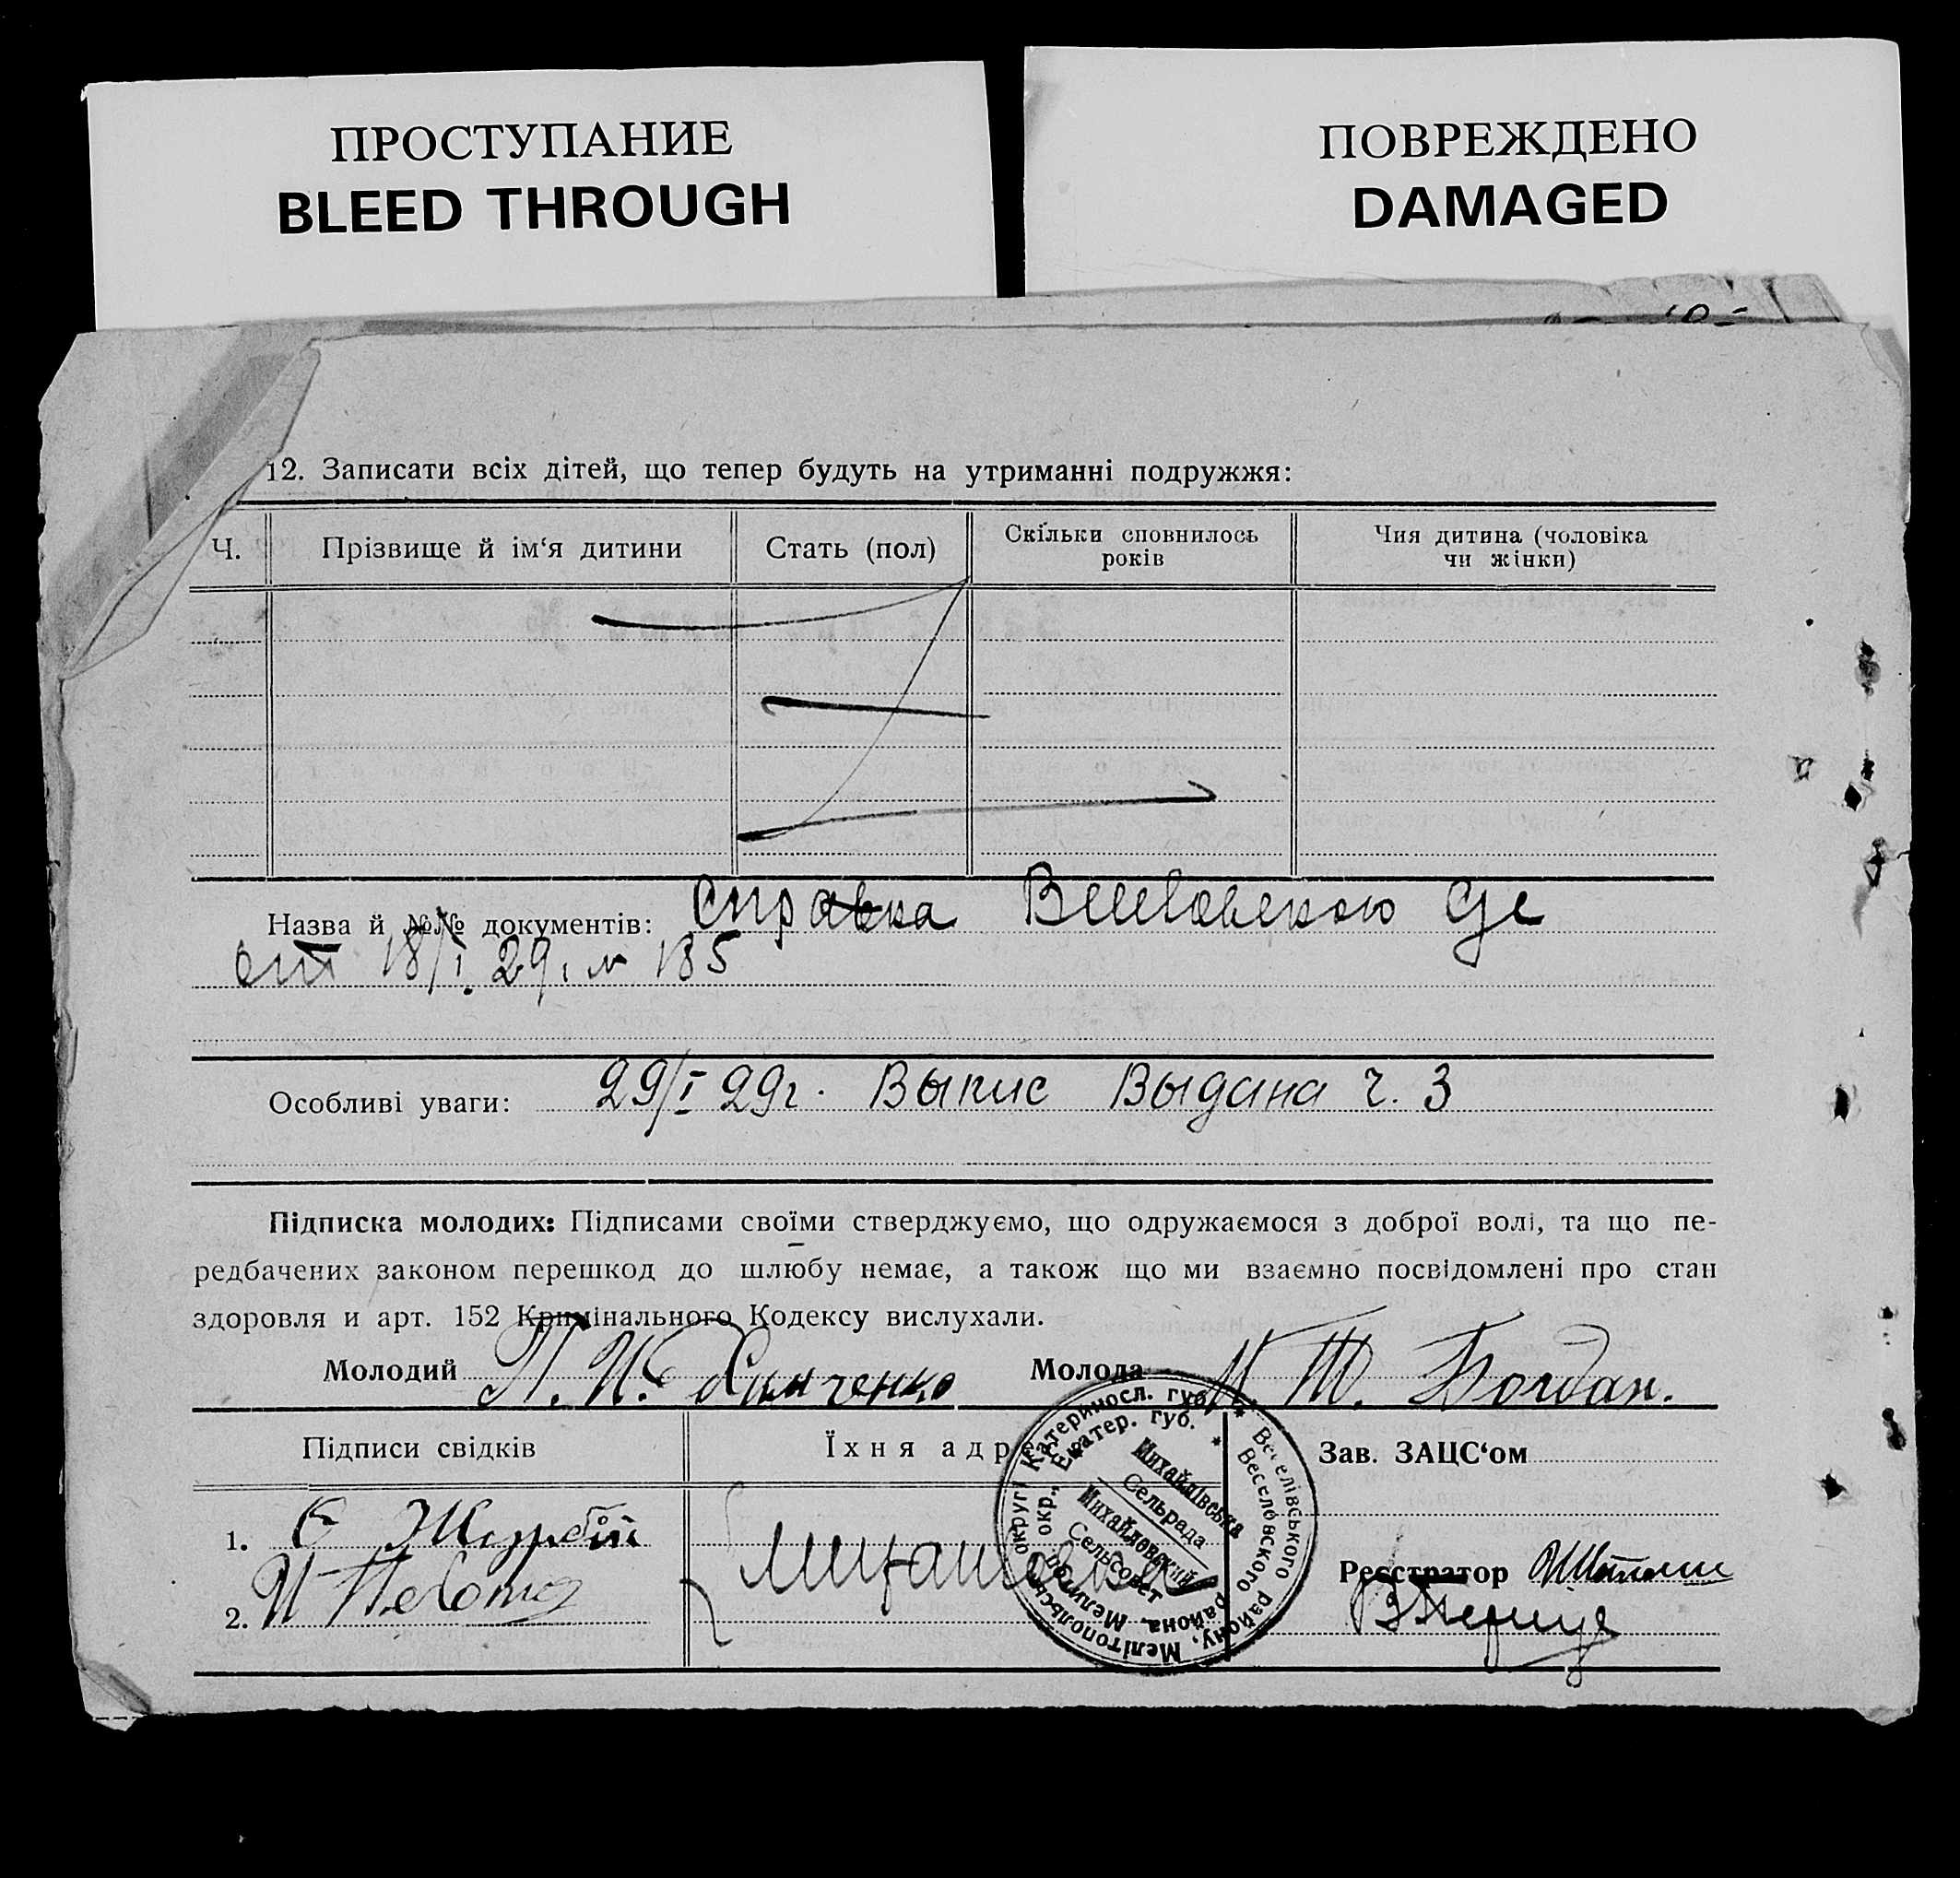 ПРОСТУПАНИЕ
BLEED THROUGH
ПОВРЕЖДЕНО
DAMAGED
12. Записати всіх дітей, що тепер будуть на утриманні подружжя:
Ч.
Прізвище й ім‘я дитини
Стать (пол)
Скільки сповнилось
років
Чия дитина (чоловіка
чи жінки)
Назва й №№ документів: Справка
от 18/I 29 185
Особливі уваги: 29/I 29г. Выпис Выдана г. 3
Підписка молодих: Підписами своїми стверджуємо, що одружаємося з доброї волі, та що пе-
редбачених законом перешкод до шлюбу немає, а також що ми взаємно посвідомлені про стан
здоровля и арт. 152 Кримінального Кодексу вислухали.
Молодий П. И.
Молода Богдан.
Підписи свідків
Їхня адр
Зав. ЗАЦС‘ом
1.
2.
Реєстратор
Катериносл. губ. * Веселівського району, Мелітопольськ округі
Екатер. губ. * Веселовского района, Мелитоп. окр.,
Михайлівська
Сельрада
Михайловский
Сельсовет